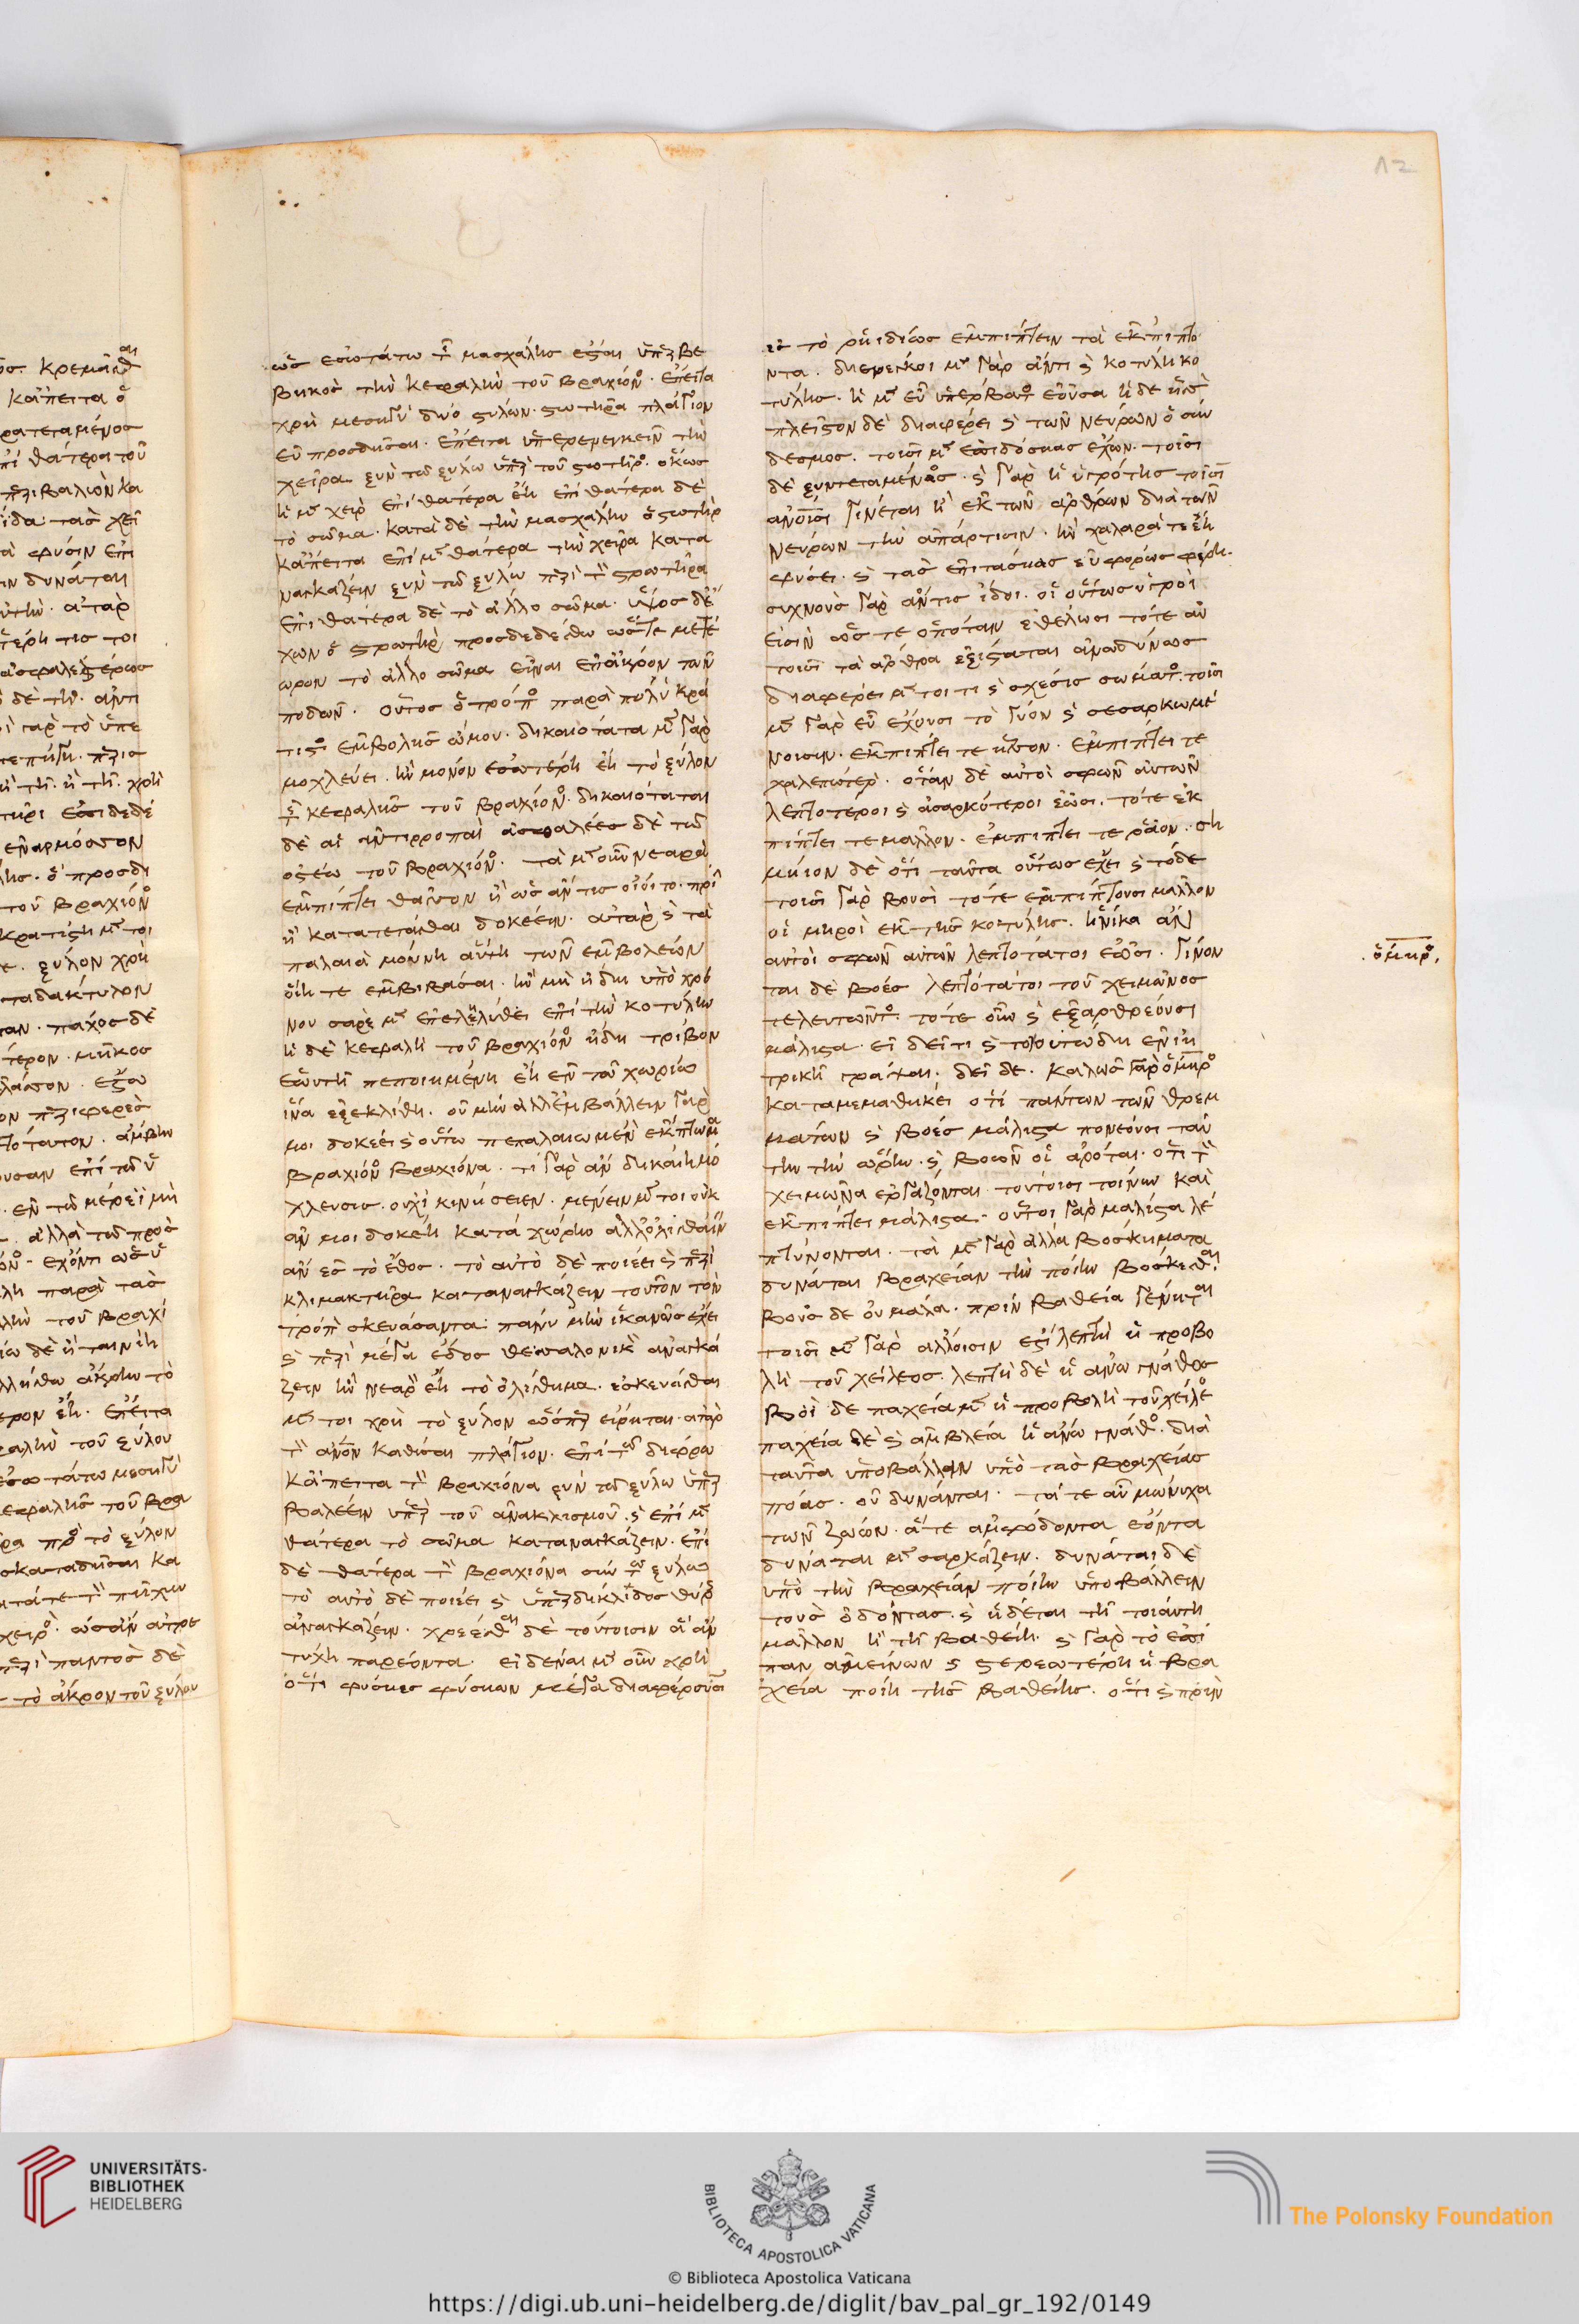 ὡς ἐσωτάτω τῆς μασχάλης ἕξαι ὑπερβε
βηκὸς τὴν κεφαλὴν τοῦ βραχίονος. ἔπειτα
χρὴ μεσηγὺ δύο στύλων στρωτῆρα πλάγιον
εὖ προσδῆσαι. ἔπειτα ὑπερενεγκεῖν τὴν
χεῖρα ξὺν τῷ ξύλῳ ὑπὲρ τοῦ στρωτῆρος. ὅκως
ἡ μὲν χεὶρ ἐπὶ θάτερα ἔῃ ἐπὶ θάτερα δὲ
τὸ σῶμα. κατὰ δὲ τὴν μασχάλην ὁ στρωτήρ
κἄπειτα ἐπὶ μὲν θάτερα τὴν χεῖρα κατα
ναγκάζειν ξὺν τῷ ξύλῳ περὶ τὸν στρωτῆρα
ἐπὶ θάτερα δὲ τὸ ἄλλο σῶμα. ὕψος δὲ ἔ
χων ὁ στρωτὴρ προσδεδέσθω ὥστε μετέ
ωρον τὸ ἄλλο σῶμα εἶναι ἐπ ἄκρων τῶν
ποδῶν. οὗτος ὁ τρόπος παρὰ πολὺ κρά
τιστος ἐμβολῆς ὤμου. δικαιότατα μὲν γὰρ
μοχλεύει. ἢν μόνον ἐσωτέρη ἔῃ τὸ ξύλον
τῆς κεφαλῆς τοῦ βραχίονος. δικαιόταται
δὲ αἱ ἀντιρροπαὶ ἀσφαλέες δὲ τῷ
ὀστέῳ τοῦ βραχίονος. τὰ μὲν οὖν νεαρὰ
ἐμπίπτει θᾶσσον ἢ ὡς ἄν τις οἴοιτο. πρὶν
ἢ κατατετάσθαι δοκέειν. ἀτὰρ καὶ τὰ
παλαιὰ μούνη αὕτη τῶν ἐμβολέων
οἵη τε ἐμβιβάσαι. ἢν μὴ ἤδη ὑπὸ χρό
νου σὰρξ μὲν ἐπεληλύθει ἐπὶ τὴν κοτύλην
ἡ δὲ κεφαλὴ τοῦ βραχίονος ἤδη τρίβον
ἑωυτῇ πεποιημένη ἔῃ ἐν τῷ χωρίῳ
ἵνα ἐξεκλίθη. οὐ μὴν ἀλλ ἐμβάλλειν γὰρ
μοι δοκέει καὶ οὕτω πεπαλαιωμένον ἔκπτωμα
βραχίονος βραχίονα. τί γὰρ ἂν δικαίη μό
χλευσις οὐχὶ κινήσειεν. μένειν μέν τοι οὐκ
ἄν μοι δοκέῃ κατὰ χώρην ἀλλ ὀλισθαίνοι
ἂν ὡς τὸ ἔθος. τὸ αὐτὸ δὲ ποιέει καὶ περὶ
κλιμακτῆρα καταναγκάζειν τοῦτον τὸν
τρόπον σκευάσαντα. πάνυ μὴν ἱκανῶς ἔχει
καὶ περὶ μέγα ἕδος θεσσαλονικὸν ἀναγκά
ζειν ἢν νεαρὸν ἔῃ τὸ ὀλίσθημα. ἐσκευάσθαι
μέν τοι χρὴ τὸ ξύλον ὥσπερ εἴρηται. ἀτὰρ
τὸν ἄνθρωπον καθίσαι πλάγιον. ἐπὶ τῷ δίφρῳ
κἄπειτα τὸν βραχίονα ξὺν τῷ ξύλῳ ὑπερ
βαλέειν ὑπὲρ τοῦ ἀνακλισμοῦ. καὶ ἐπὶ μὲν
θάτερα τὸ σῶμα καταναγκάζειν. ἐπὶ
δὲ θάτερα τὸν βραχίονα σὺν τῷ ξύλῳ
τὸ αὐτὸ δὲ ποιέει καὶ ὑπὲρ δικλίδος θύρης
ἀναγκάζειν. χρέεσθαι δὲ τούτοισιν ἃ ἂν
τύχῃ παρεόντα. εἰδέναι μὲν οὖν χρὴ
ὅτι φύσιες φυσίων μέγα διαφέρουσι
ες τὸ ῥηϊδίως ἐμπίπτειν τὰ ἐκπίπτο
ντα. διενέγκοι μὲν γὰρ ἄν τι καὶ κοτύλη κο
τύλης. ἡ μὲν εὐυπέρβατος ἐοῦσα ἡ δὲ ἧσσον
πλεῖστον δὲ διαφέρει καὶ τῶν νεύρων ὁ σύν
δεσμος. τοῖσι μὲν ἐπιδόσιας ἔχων. τοῖσι
δὲ ξυντεταμένος. καὶ γὰρ ἡ ὑγρότης τοῖσιν
ἀνθρώποισι γίνεται ἡ ἐκ τῶν ἄρθρων διὰ τῶν
νεύρων τὴν ἀπάρτισιν. ἢν χαλαρά τε ἔῃ
φύσει. καὶ τὰς ἐπιτάσιας εὐφόρως φέρῃ.
συχνοὺς γὰρ ἄν τις ἴδοι. οἳ οὕτως ὑγροί
εἰσιν ὥς τε ὁπόταν ἐθέλωσι τότε αὐ
τοῖσι τὰ ἄρθρα ἐξίσταται ἀνωδύνως
διαφέρει μέν τοί τι καὶ σχέσις σώματος. τοῖσι
μὲν γὰρ εὖ ἔχουσι τὸ γυῖον καὶ σεσαρκωμέ
νοισιν. ἐκπίπτει τε ἧσσον. ἐμπίπτει τε
χαλεπώτερον. ὅταν δὲ αὐτοὶ σφῶν αὐτῶν
λεπτότεροι καὶ ἀσαρκότεροι ἔωσι. τότε ἐκ
πίπτει τε μᾶλλον. ἐμπίπτει τε ῥᾷον. ση
μήιον δὲ ὅτι ταῦτα οὕτως ἔχει καὶ τόδε
τοῖσι γὰρ βουσὶ τότε ἐκπίπτουσι μᾶλλον
οἱ μηροὶ ἐκ τῆς κοτύλης. ἡνίκα ἂν
αὐτοὶ σφῶν αὐτῶν λεπτότατοι ἔωσι. γίνον
ται δὲ βόες λεπτότατοι τοῦ χειμῶνος
τελευτῶντος. τότε οὖν καὶ ἐξαρθρέουσι
μάλιστα. εἰ δεῖ τι καὶ τοιουτῶδη ἐν ἰη
τρικῇ γράψαι. δεῖ δε. καλῶς γὰρ ὅμηρος
καταμεμαθήκει ὅτι πάντων τῶν θρεμ
μάτων καὶ βόες μάλιστα πονέουσι ταύ
την τὴν ὥρην. καὶ βοῶν οἱ ἀρόται. ὅτι τὸν
χειμῶνα ἐργάζονται. τούτοισι τοίνυν καὶ
ἐκπίπτει μάλιστα. οὗτοι γὰρ μάλιστα λε
πτύνονται. τὰ μὲν γὰρ ἄλλα βοσκήματα
δύναται βραχεῖαν τὴν ποίην βόσκεσθαι.
βοῦς δὲ οὐ μάλα. πρὶν βαθεῖα γένηται
τοῖσι μὲν γὰρ ἄλλοισιν ἐστὶ λεπτὴ ἡ προβο
λὴ τοῦ χείλεος. λεπτὴ δὲ ἡ ἄνω γνάθος
βοῒ δὲ παχεῖα μὲν ἡ προβολὴ τοῦ χείλεος
παχεῖα δὲ καὶ ἀμβλεῖα ἡ ἄνω γνάθος. διὰ
ταῦτα ὑποβάλλειν ὑπὸ τὰς βραχείας
πόας. οὐ δύνανται. τά τε αὖ μώνυχα
τῶν ζώων. ἅτε ἀμφόδοντα ἐόντα
δύναται μὲν σαρκάζειν. δύναται δὲ
ὑπὸ τὴν βραχεῖαν ποίην ὑποβάλλειν
τοὺς ὀδόντας. καὶ ἥδεται τῇ τοιαύτῃ
μᾶλλον ἢ τῇ βαθείῃ. καὶ γὰρ τὸ ἐπί
παν ἀμείνων καὶ στερεωτέρη ἡ βρα
χεῖα ποίη τῆς βαθείης. ὅτι καὶ πρὶν
ὅμηρος
UNIVERSITÄTS-
BIBLIOTHEK
HEIDELBERG
BIBLIOTECA APOSTOLICA VATICANA
The Polonsky Foundation
© Biblioteca Apostolica Vaticana
https://digi.ub.uni-heidelberg.de/diglit/bav_pal_gr_192/0149